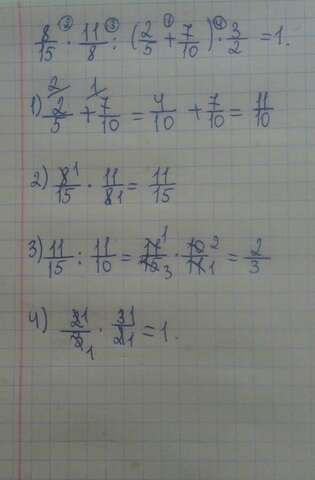 8/15 ② · 11/8 ③ : (2/5 ① + 7/10) ④ · 3/2 = 1.
1) 2/5 (2) + 7/10 (1) = 4/10 + 7/10 = 11/10
2) 8 1/15 · 11/8 1 = 11/15
3) 11/15 : 11/10 = 11 1/15 3 · 10 2/11 1 = 2/3
4) 2 1/3 1 · 3 1/2 1 = 1.